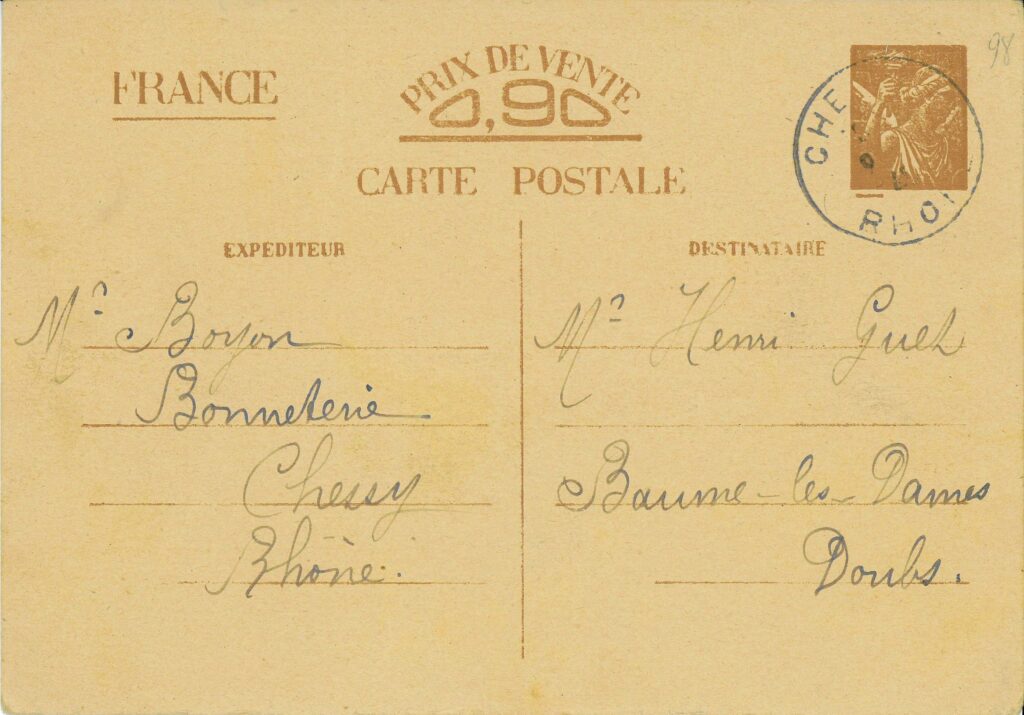 FRANCE
PRIX DE VENTE
0,90
CARTE POSTALE
98
CHE
RHO
EXPÉDITEUR
Mr Boyon
Bonneterie
Chessy
Rhône.
DESTINATAIRE
Mr Henri Guel
Baume-les-Dames
Doubs.